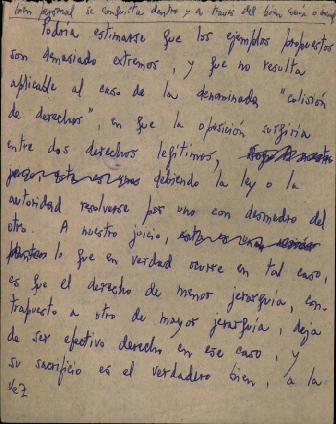 bien personal se conquista dentro y a través del bien
Podría estimarse que los ejemplos propuestos
son demasiado extremos, y que no resulta
aplicable al caso de la denominada "colisión
de derechos", en que la oposición surgiría
entre dos derechos legítimos,
debiendo la ley o la
autoridad resolverse por uno con desmedro del
otro. A nuestro juicio,
lo que en verdad ocurre en tal caso,
es que el derecho de menor jerarquía, con-
trapuesto a otro de mayor jerarquía, deja
de ser efectivo derecho en ese caso, y
su sacrificio es el verdadero bien, a la
vez